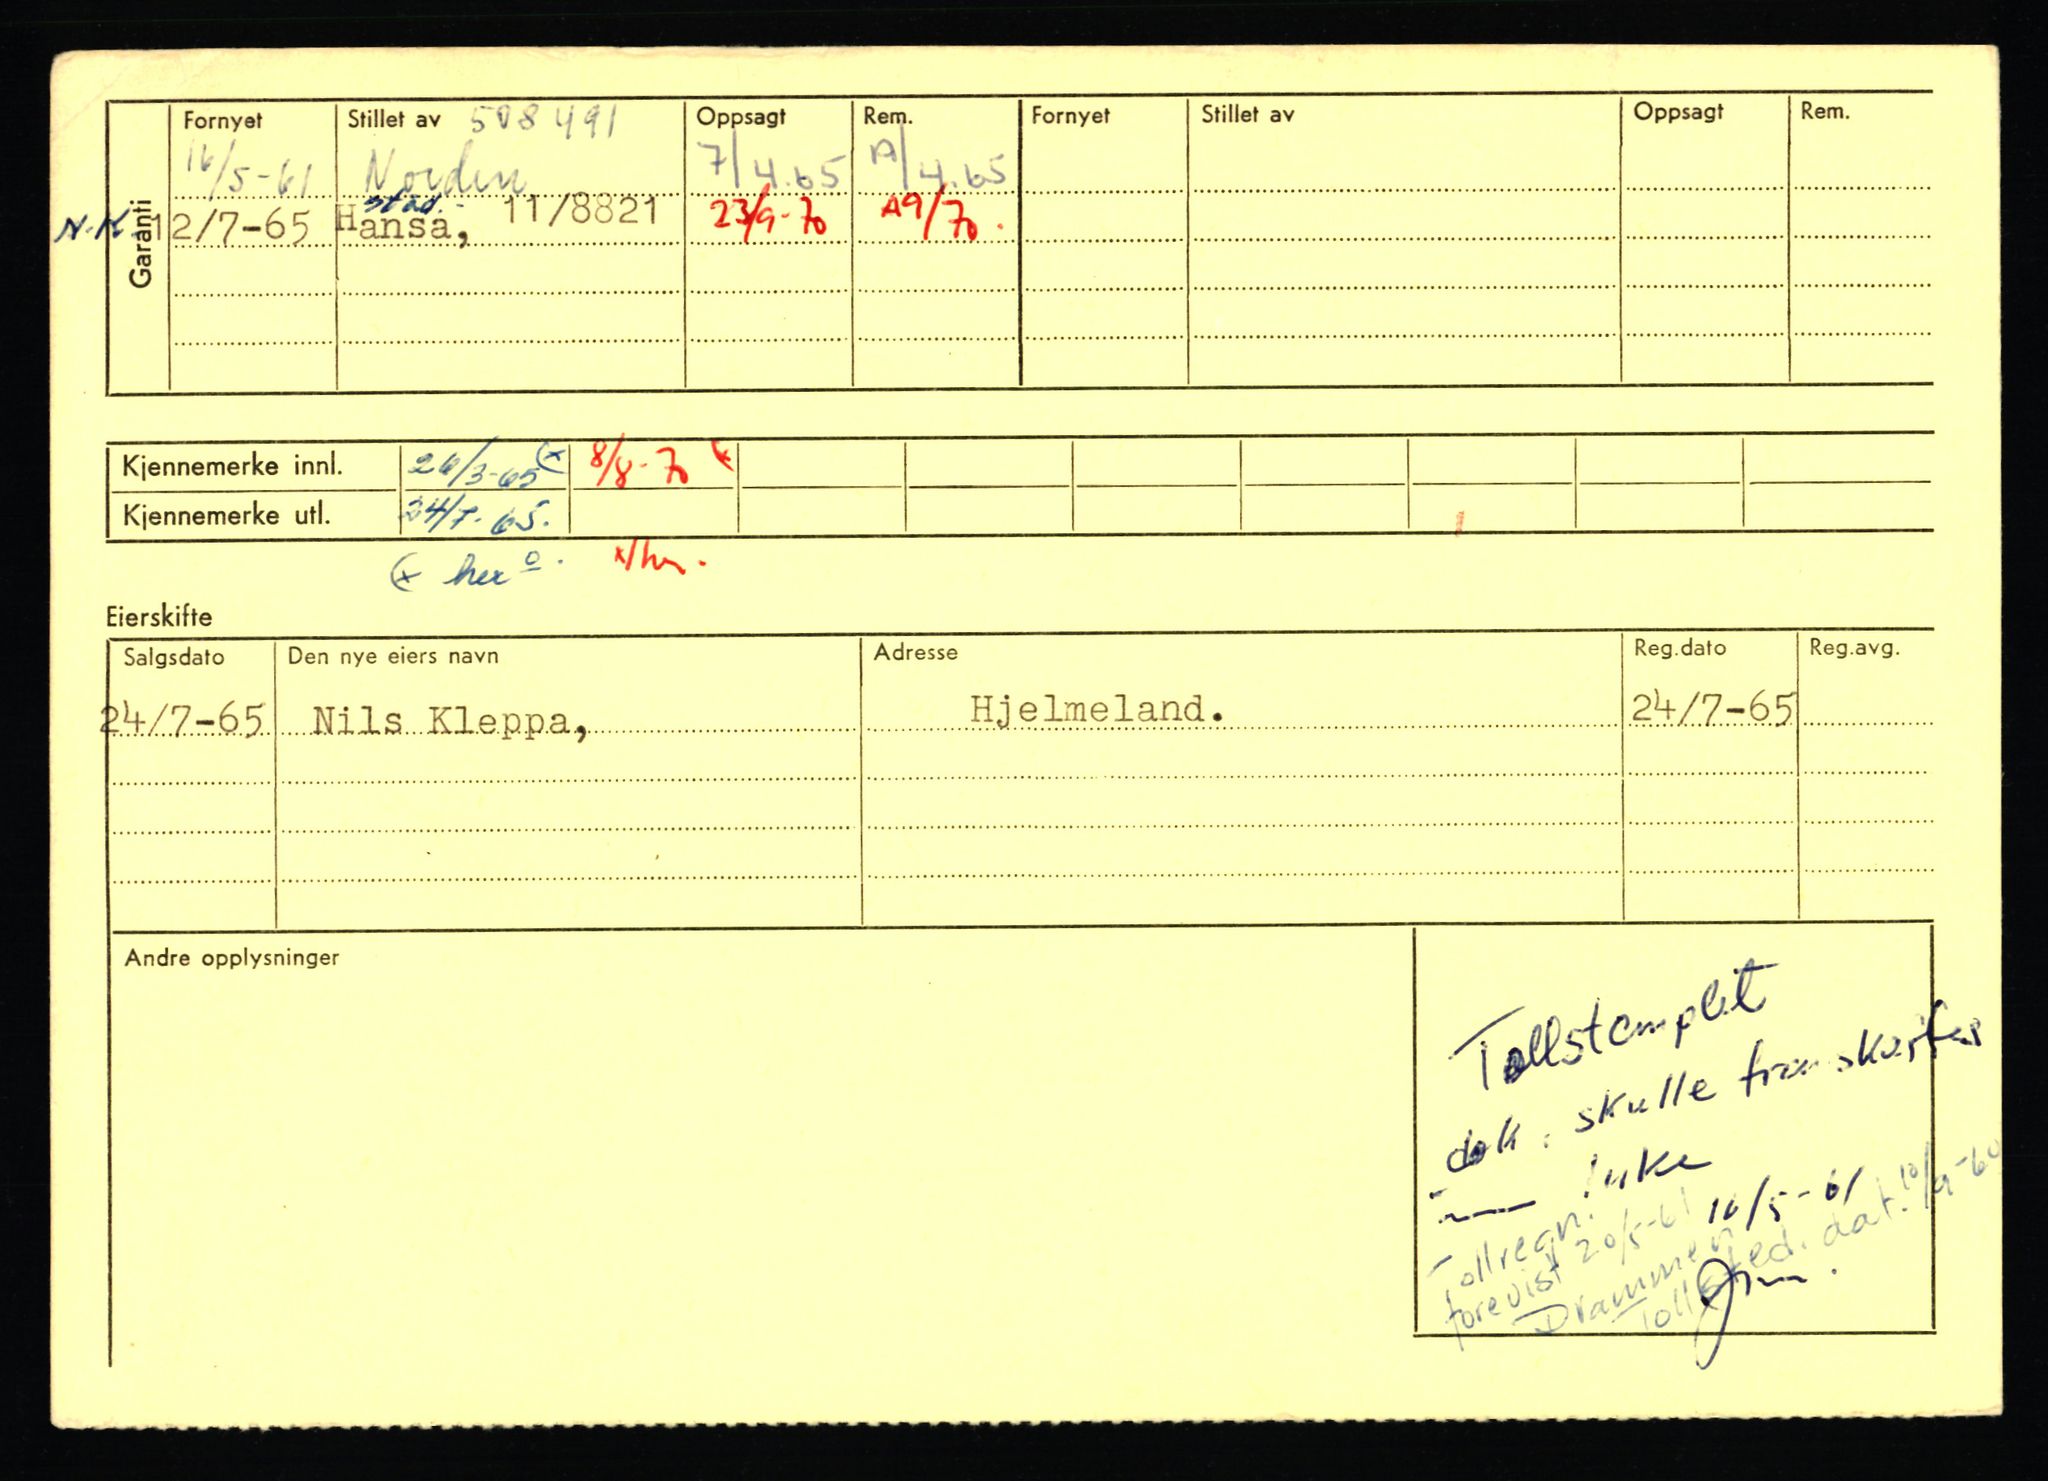 Garanti
Fornyet Stillet av 508491 Oppsagt Rem. Fornyet Stillet av Oppsagt Rem.
16/5-61 Norden 7/4.65 A/4.65
stad.
N.K. 12/7-65 Hansa, 11/8821 23/9-70 A9/70.
Kjennemerke innl. 26/3-65 (x 8/8-70 (x
Kjennemerke utl. 24/7-65.
(x her o. x/her.
Eierskifte
Salgsdato Den nye eiers navn Adresse Reg.dato Reg.avg.
24/7-65 Nils Kleppa, Hjelmeland. 24/7-65
Andre opplysninger
Tollstemplet
dok. skulle framskaffes
1 uke
16/5-61
Tollregn.
forevist 20/5-61
Drammen
Tollsted. dat. 10/9-60